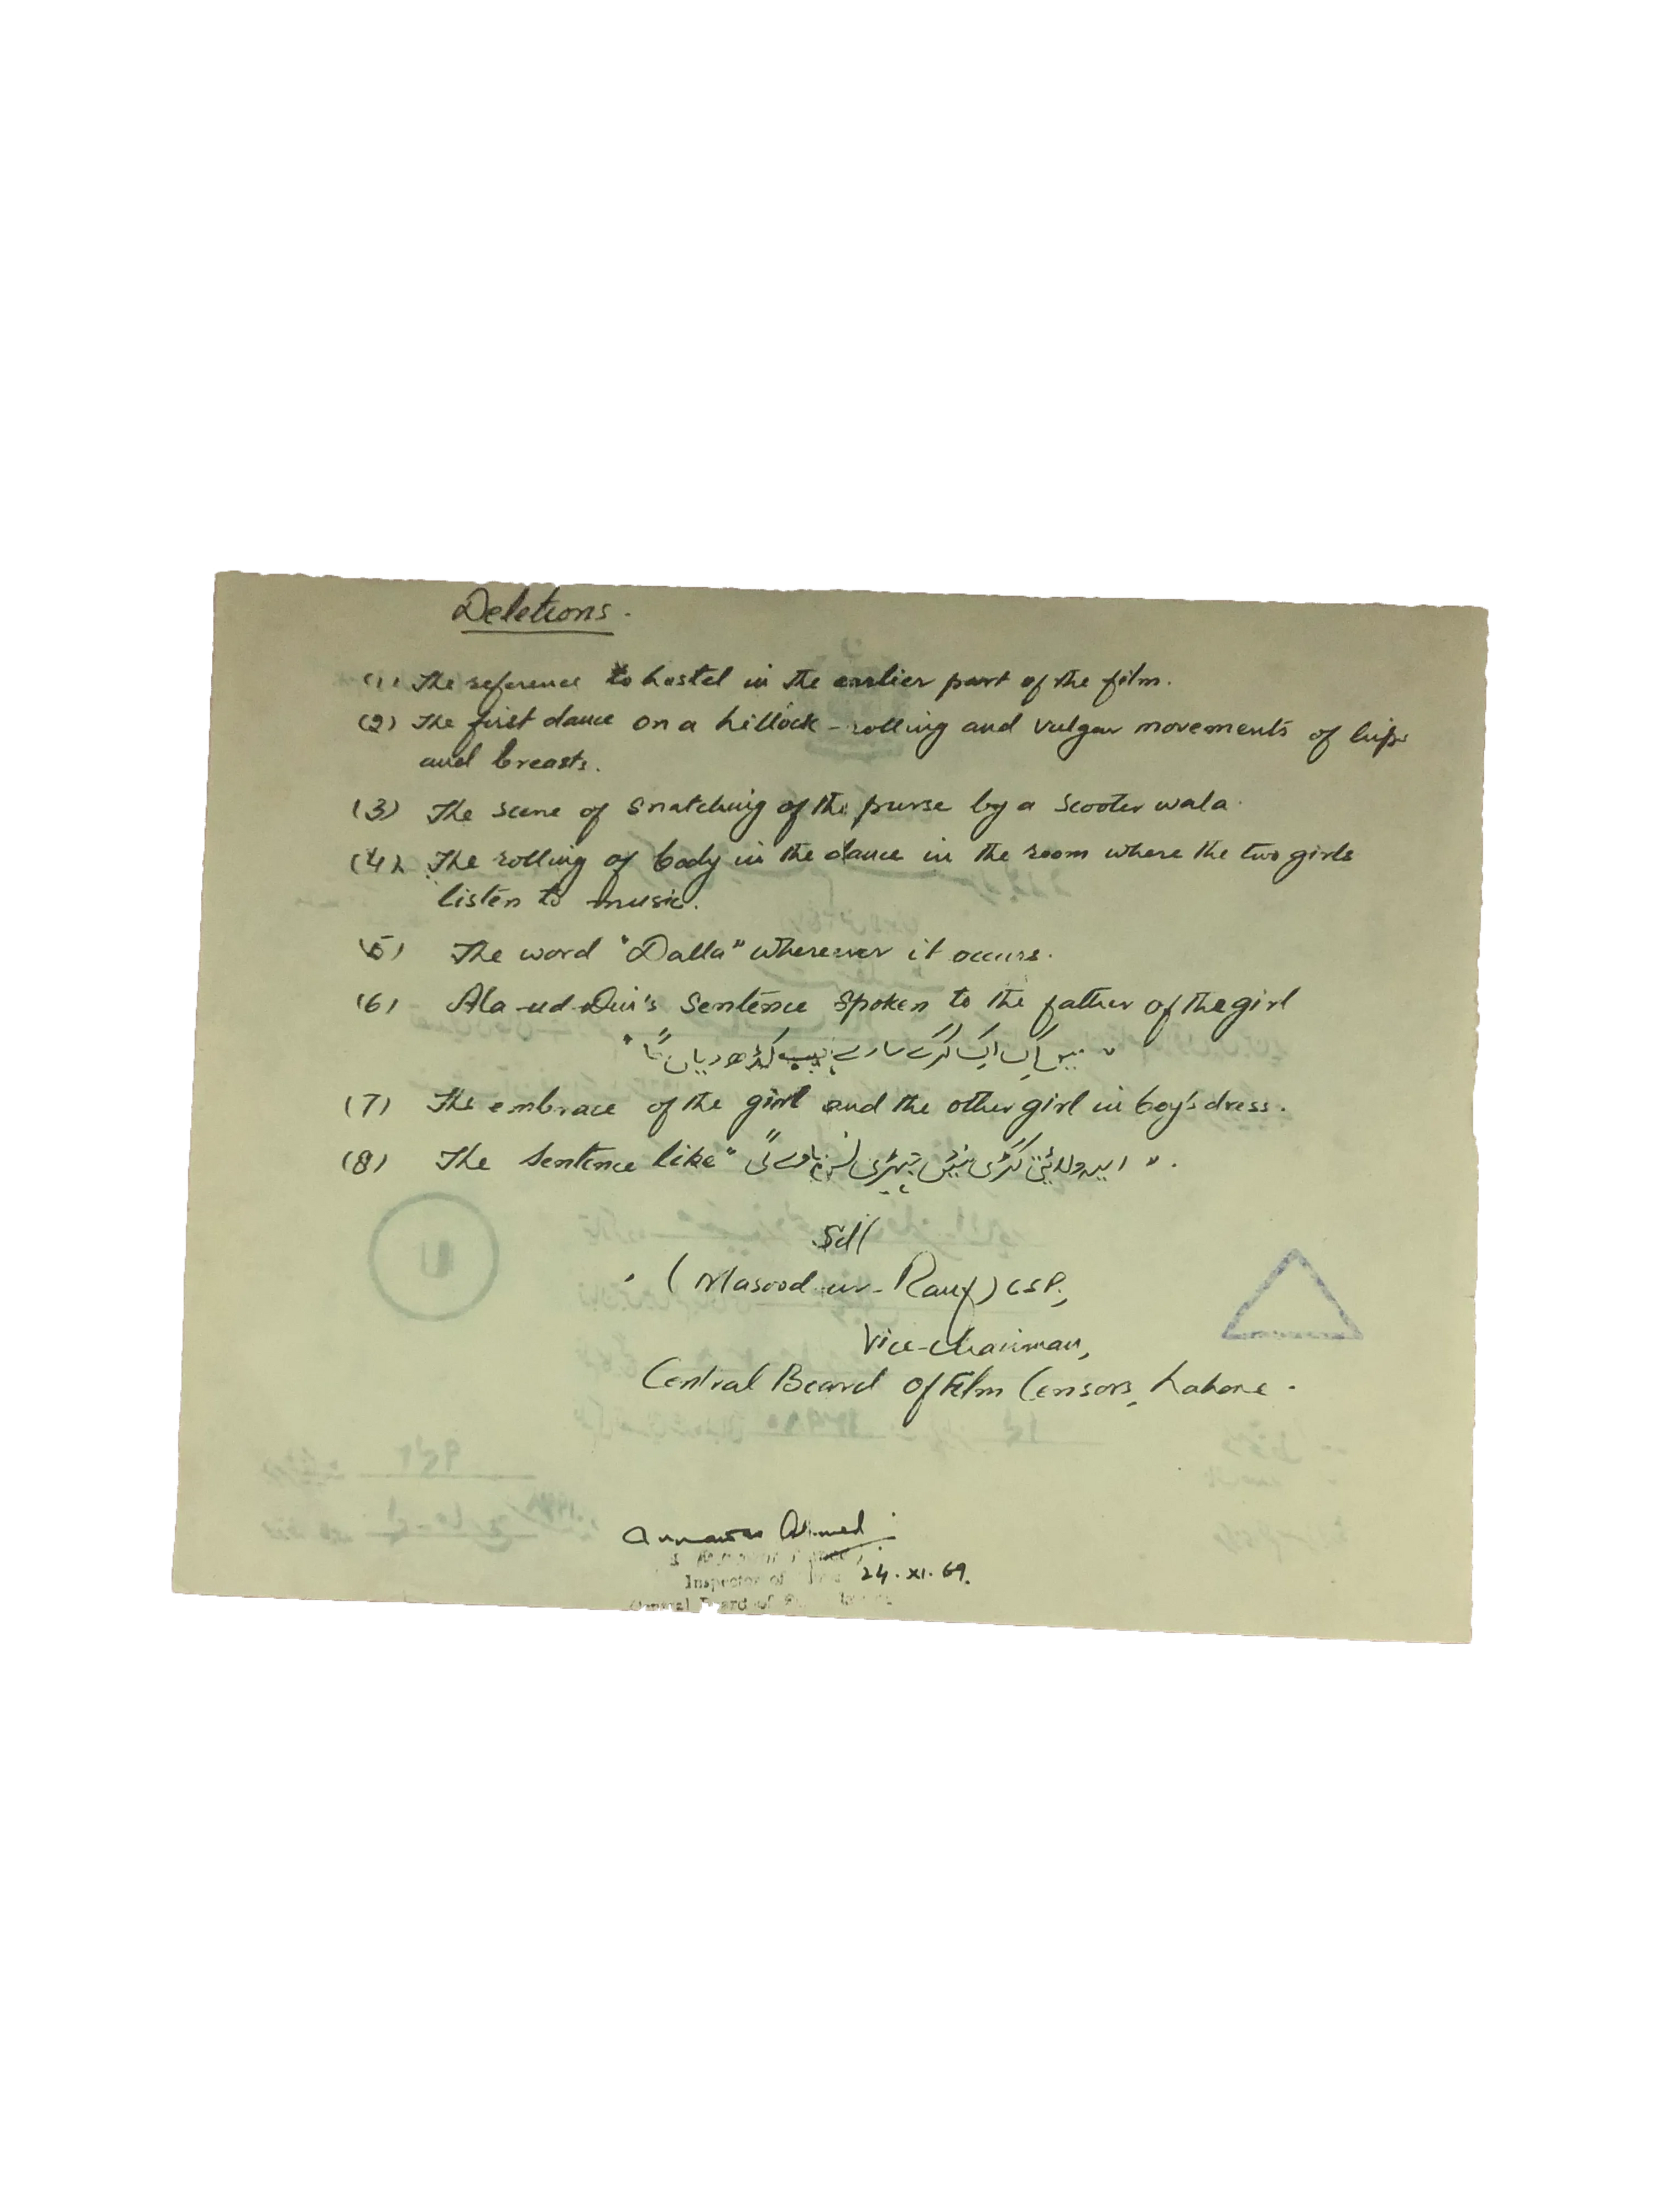 Deletions.
(1) The reference to hostel in the earlier part of the film.
(2) The first dance on a hillock - rolling and vulgar movements of hips
and breasts.
(3) The scene of snatching of the purse by a scooter wala.
(4) The rolling of body in the dance in the room where the two girls
listen to music.
(5) The word "Dalla" wherever it occurs.
(6) Ala-ud-Din's sentence spoken to the father of the girl
"میں اک ایک کرکے سارے کڈھ دیاں گا"
(7) The embrace of the girl and the other girl in boy's dress.
(8) The sentence like "کڑی نئیں"
Sd/
(Masood-ur-Rauf) CSP,
Vice-Chairman,
Central Board of Film Censors, Lahore.
Ahmed
Inspector of 24.XI.69.
Board of
U